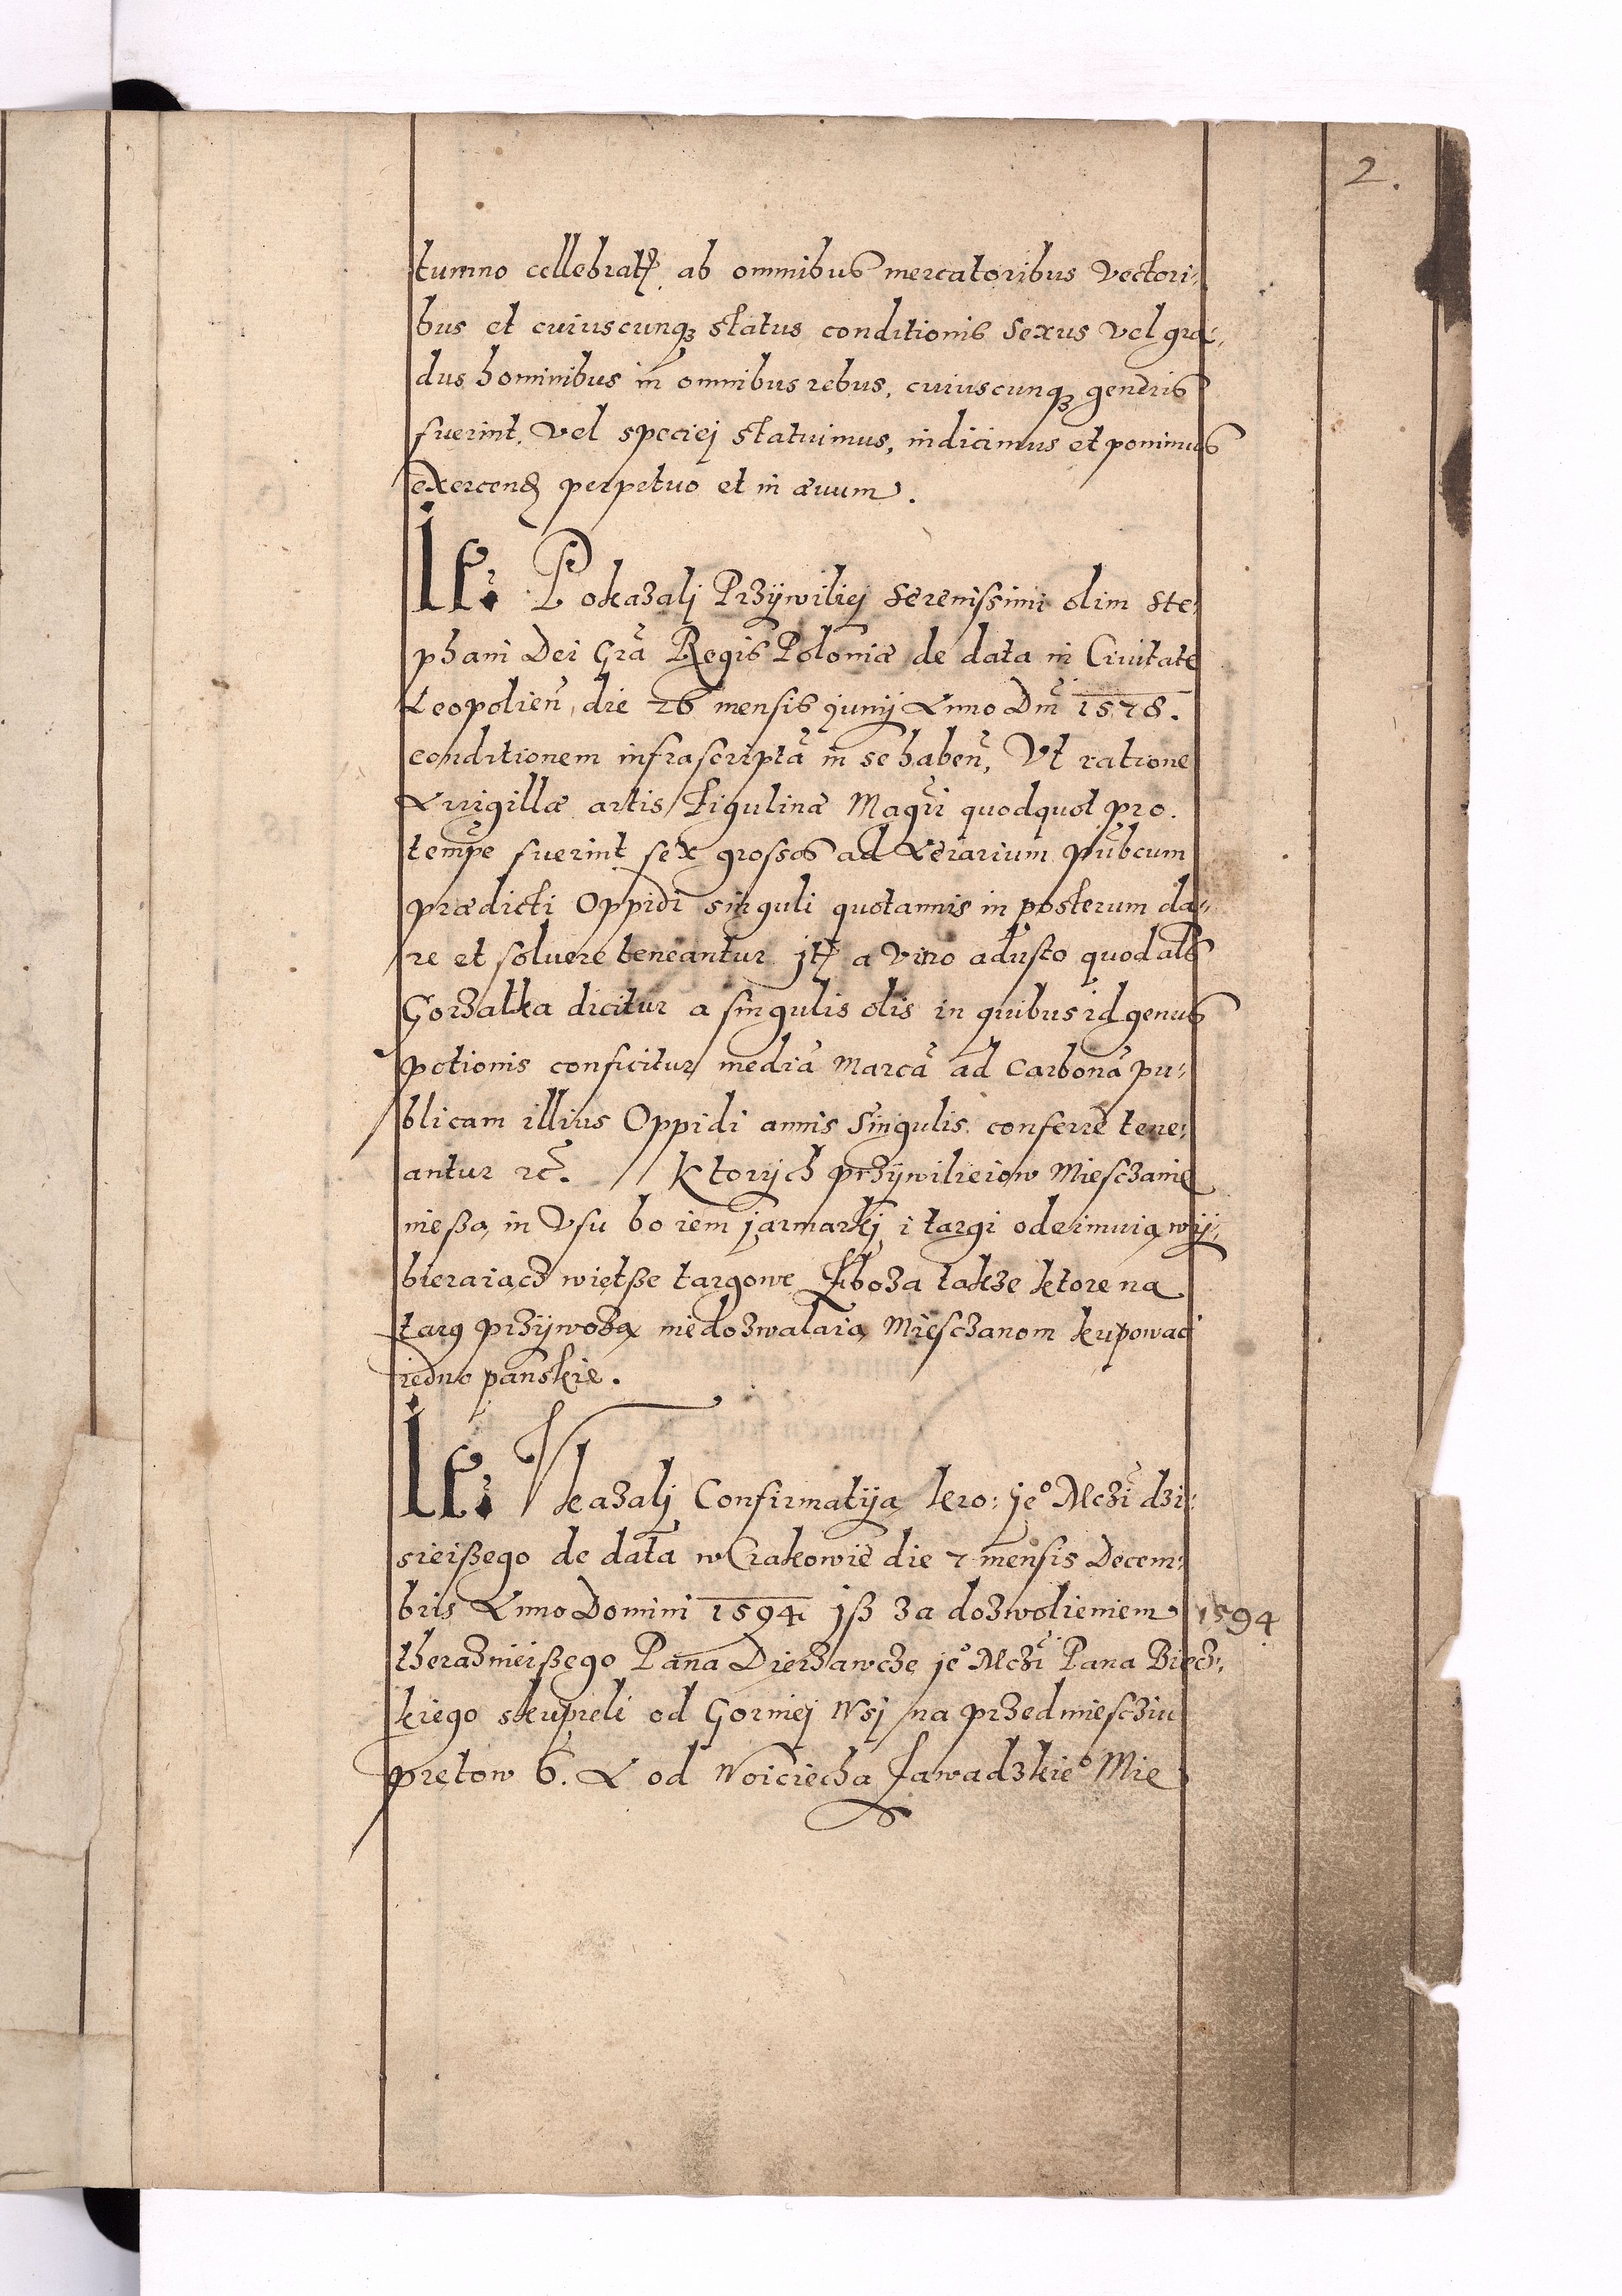 2.
tumno cellebrat(ur) ab omnibus mercatoribus Vectori-
bus et cuiuscunq(ue) status conditionis Sexus Vel gra-
dus hominibus in omnibus rebus, cuiuscunq(ue) generis
fuerint, Vel speciej statuimus, indicimus et ponimus
exercend perpetuo et in æuum.
It: Pokazalj Przÿwiliej Serenissimi olim Ste-
phani Dei Grã Regis Poloniæ de data in Ciuitate
Leopolien̄, die 26 mensis Junij Anno Dm̄ 1578.
conditionem infrascriptã in se haben̄, Vt ratione
Argillæ artis Figulinæ Magr̃i quodquot pro
temp̃e fuerint sex grossos ad Aerarium pub̃cum
prædicti Oppidi singuli quotannis in posterum da-
re et soluere teneantur. jt(em) a Vino adusto quod al̃s
Gorzałka dicitur a singulis olis in quibus id genus
potionis conficitur mediã Marcã ad Carbonã pu-
blicam illius Oppidi annis Singulis conferre tene-
antur ꝛc̃. // Ktorÿch przÿwilieiow Miesczanie
nießą in Vsu bo iem jarmarkj i targi odeimuią wÿ-
bieraiącz wietße targowe Zboza takze ktore na
targ przÿwożą niedozwalaią Miesczanom kupowac
iedno panskie.
It: Vkazalj Confirmatiją kro: jeº Mczi dzi-
sieißego de data w Crakowie die 7 mensis Decem-
bris Anno Domini 1594 jß za dozwolieniem
1594
theraznieißego Pana Dzierzawcze jeº Mczi Pana Biecz-
kiego skupieli od Gorniej Wsj na przedmiescziu
prętow 6. A od Woiciecha Zawadzkieº Mie